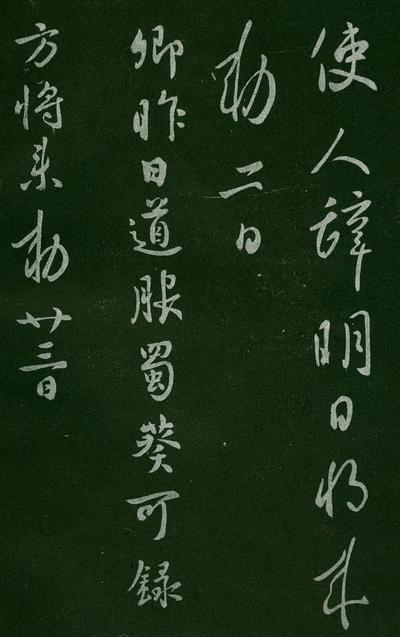 使人辞明日将来
勅二日
卿昨日道服蜀葵可録
方将来勅廿三日